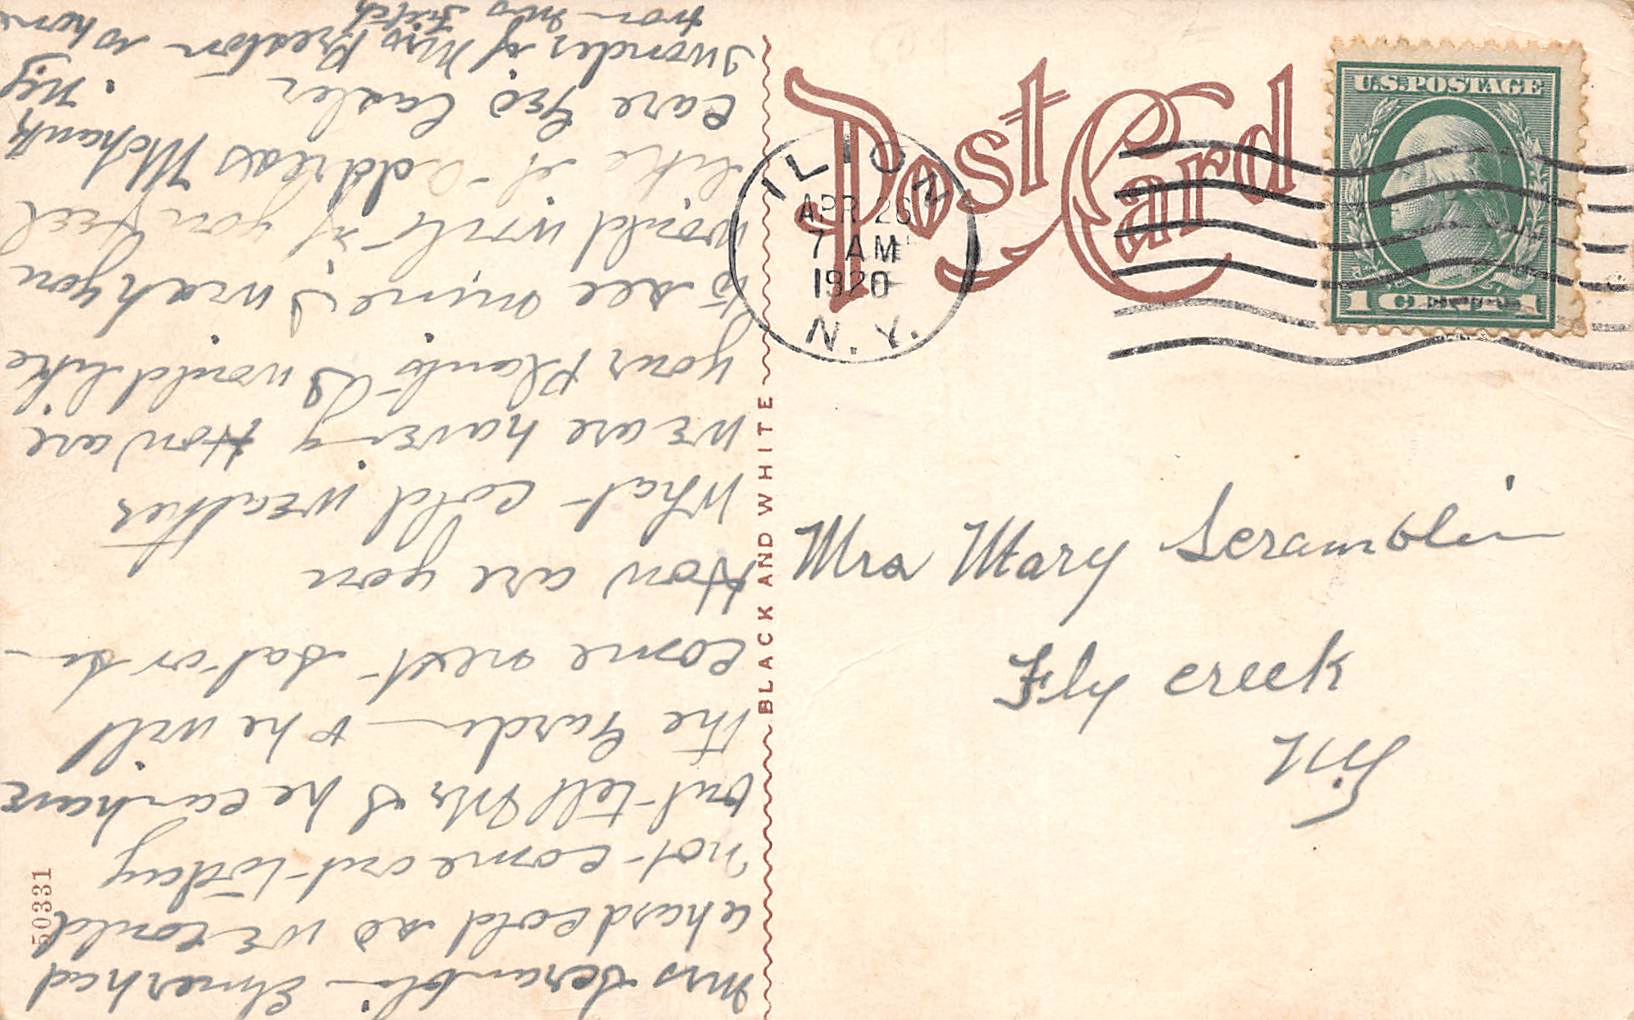 Post Card
U.S. POSTAGE
1 CENT 1
ILION
APR 26
7 AM
1920
N. Y.
BLACK AND WHITE
50331
Mrs Mary Scramblin
Fly creek
NY
Mrs Scramblin Elmer had
a hard cold so we could
not come out today
but tell Mr S he can have
the Garden & he will
come next Sat or Su
How are you
What cold weather
we are having How are
your Plants I would like
to see mine I wish you
would write if you feel
like it address Mohawk
care Geo Casler N.Y.
I wonder if Mrs Preston is home
from Mrs Fitch